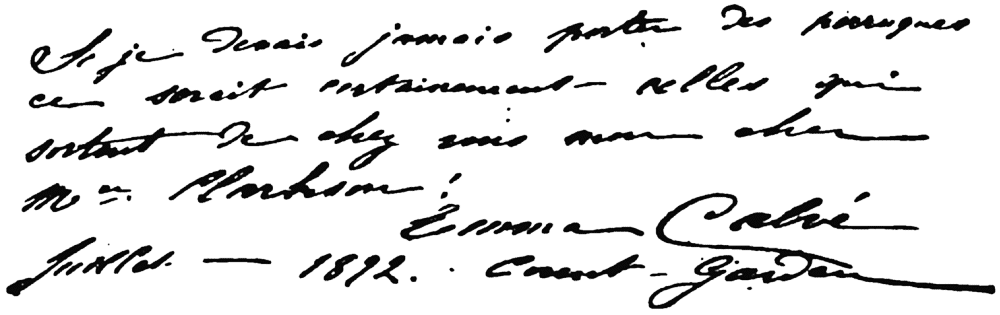 Si je devais jamais porter des perruques
ce serait certainement celles qui
sortent de chez vous mon cher
Mr. Clarkson!
Emma Calvé
Juillet — 1892. Covent-Garden